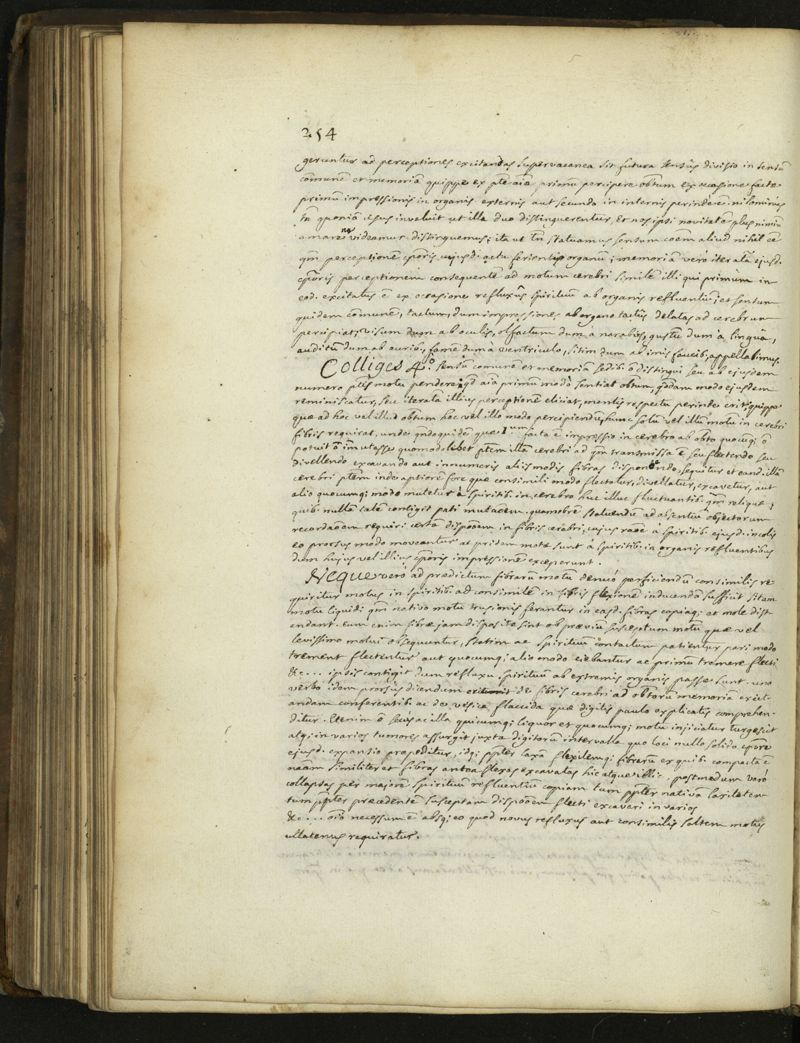 254
geruntur ad perceptiones excitandas supervacanea sit futura sensûs divisio in sensũ
comunẽ et memoriã quippe ex ptẽ aiæ primũ percipere obtum ex occasione factæ
primũ impressionis in organis externis aut secundo in internis perinde nihilominus
tñ quoniã usus involuit ut illa duo distinguerentur, et nos ipsi novitatẽ plus nimiũ
amare ne videamur distinguemus; ita ut tñ statuamus sensum coẽm aliud nihil eẽ
qm̃ perceptionẽ cporis cujusdã actu ferientis organũ; memoriã verò iteratã ejusd.
cporis perceptionem consequentẽ ad motum cerebri similẽ illi qui primùm in
eod. excitatus ẽ ex occasione refluxûs spirituum ab organis refluentiũ; et sensum
quidem comunẽ, tactum, dum impressiones ab organo tactûs delatas ad cerebrum
percipiat; visum dum ab oculis, olfactum dum à naribus, gustũ dum à linguâ,
auditũ dum ab auribꝰ, famẽ dum à ventriculo, sitim dum ab imis faucibꝰ appellabimus.
Colliges 4.° sensũ comunẽ et memoriã sedibꝰ õ distingui seu ab ejusdem
numero ptis motu pendere; qd aiã primũ modò sentiat obtum, qdam modo ejusdem
reminiscatur, seu iterata illius perceptionẽ eliciat, mentis respectu perinde erit; quippe
quæ ad hoc vel illud obtum hoc vel illo modo percipiendũ, hunc solũ vel illũ motũ in cerebri
fibris requirat, unde qndoquidem quæ 1um facta ẽ impressio in cerebro ab obto quocumq; õ
potuit õ im̃utasse quomodolibet ptem illã cerebri ad qm̃ transmissa ẽ seu flectendo seu
divellendo excavando aut innumeris aliis modis fibras disponendo, sequitur et eand. illã
cerebri ptẽm inde aptiorẽ fore quæ consimili modo flectatur, divellatur, excavetur, aut
alio quocumq; modo mutetur à spiritibꝰ in cerebro huc illuc fluctuantibꝰ qm̃ reliquæ;
quibꝰ nullã talẽ contigit pati mutaõem. quamobrẽ statuendũ ad absentiũ objectorum
recordaõem requiri certã disposõem in fibris cerebri, cujus raõe à spiritibꝰ ejusd. incolis
eo prorsus modo moveantur ac pridem motæ sunt à spiritibꝰ in organis refluentibus
dum hujus vel illius cporis impressionẽ exceperunt.
Neque verò ad prædictum fibrarũ motũ denuò perficiendũ consimilis re-
quiritur motus in spiritibꝰ ad consimilẽ in fibris flexionẽ inducendã sufficit si tam
motu liquidi qm̃ nativo motu trusionis ferantur in easd. fibras copiaq; et mole dist-
endant. cum enim fibræ jam dispositæ sint ob præviũ susceptum motũ quæ vel
levissimo motui obsequuntur, statim ac spirituum contactum patientur pari modo
trement flectentur aut quocumq; alio modo ciebuntur ac primũ tremere flecti
&c... ipsis contigit dum refluxũ spirituum ab externis organis passæ sunt. uno
verbo idem prorsus dicendum de fibris cerebri ad obtorũ memoriã exci-
tandam conferentibꝰ ac de vesicâ flaccidâ quæ digitis paulo explicatis comprehen-
ditur. etenim õ secus ac illa quicumq; liquor et quocumq; motu injiciatur turgescit
atq; in varios tumores assurgit juxta digitorum intervalla quo loci nullo solido cpore
ejusd. expansio præpeditur, idq; ppter laxã flexilemq; fibrarũ ex quibꝰ compacta ẽ
naam similiter at fibras antea flexas excavatas hic atque illic. postmodum verò
collapsas per majorẽ spirituum refluentiũ copiam tum ppter nativã laxitatem
tum ppter præcedentẽ susceptam disposõem flecti excavari in varios
&c... oio necessum ẽ absq; eo quod novus refluxus aut consimilis saltem motus
ullatenus requiratur.